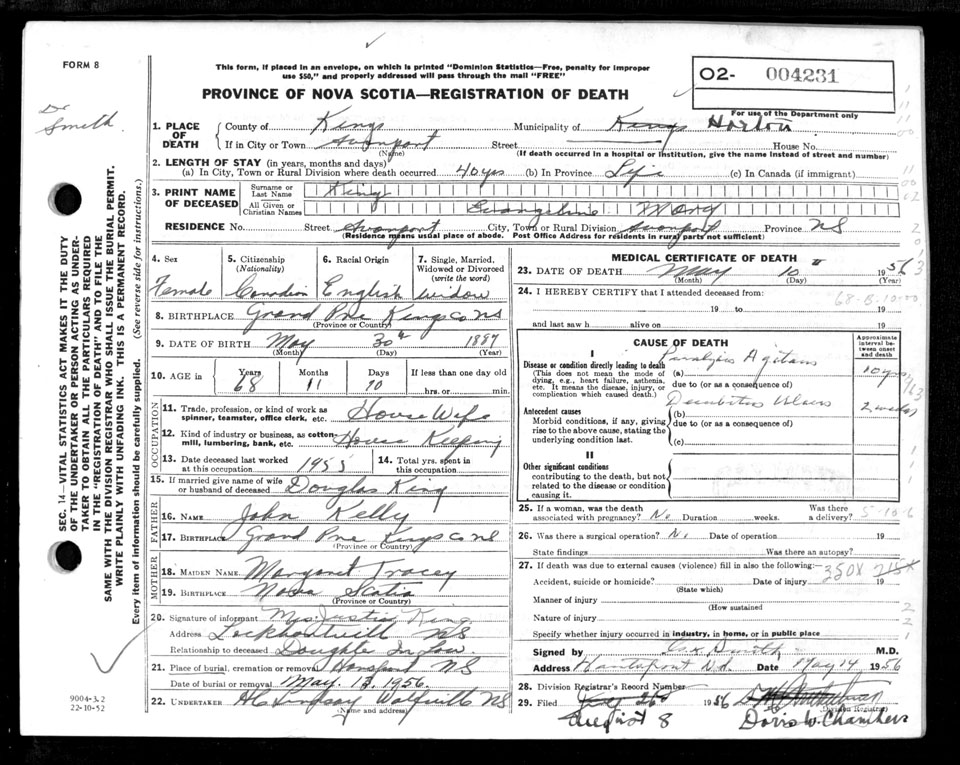 FORM 8
This form, if placed in an envelope, on which is printed "Dominion Statistics—Free, penalty for improper
use $50," and properly addressed will pass through the mail "FREE"
O2- 004231
PROVINCE OF NOVA SCOTIA—REGISTRATION OF DEATH
For use of the Department only
Dr Smith
1. PLACE OF DEATH
County of Kings Municipality of Kings Horton
If in City or Town Avonport Street House No.
(Name) (If death occurred in a hospital or institution, give the name instead of street and number)
2. LENGTH OF STAY (in years, months and days)
(a) In City, Town or Rural Division where death occurred 40 yrs (b) In Province Life (c) In Canada (if immigrant)
3. PRINT NAME OF DECEASED
Surname or Last Name King
All Given or Christian Names Evangeline Mary
RESIDENCE No. Street Avonport City, Town or Rural Division Avonport Province NS
(Residence means usual place of abode. Post Office Address for residents in rural parts not sufficient)
4. Sex
Female
5. Citizenship (Nationality)
Canadian
6. Racial Origin
English
7. Single, Married, Widowed or Divorced (write the word)
Widow
8. BIRTHPLACE Grand Pre Kings co NS
(Province or Country)
9. DATE OF BIRTH May 30th 1887
(Month) (Day) (Year)
10. AGE in Years 68 Months 11 Days 10 If less than one day old
hrs. or min.
OCCUPATION
11. Trade, profession, or kind of work as spinner, teamster, office clerk, etc. House Wife
12. Kind of industry or business, as cotton mill, lumbering, bank, etc. House Keeping
13. Date deceased last worked at this occupation 1955 14. Total yrs. spent in this occupation
15. If married give name of wife or husband of deceased Douglas King
FATHER
16. NAME John Kelly
17. BIRTHPLACE Grand Pre Kings co NS
(Province or Country)
MOTHER
18. MAIDEN NAME Margaret Tracey
19. BIRTHPLACE Nova Scotia
(Province or Country)
20. Signature of informant Mrs Justin King
Address Lockhartville NS
Relationship to deceased Doughter In Law
21. Place of burial, cremation or removal Hansport NS
Date of burial or removal May. 13, 1956.
22. UNDERTAKER HC Lindsay Wolfville NS
(Name and address)
MEDICAL CERTIFICATE OF DEATH
23. DATE OF DEATH May 10 1956
(Month) (Day) (Year)
24. I HEREBY CERTIFY that I attended deceased from:
19 to 19
and last saw h alive on 19
CAUSE OF DEATH
Approximate interval between onset and death
I
Disease or condition directly leading to death
(This does not mean the mode of dying, e.g., heart failure, asthenia, etc. It means the disease, injury, or complication which caused death.)
(a) Paralysis Agitans 10 yrs
due to (or as a consequence of)
Antecedent causes
Morbid conditions, if any, giving rise to the above cause, stating the underlying condition last.
(b) Decubitus Ulcers 2 weeks
due to (or as a consequence of)
(c)
II
Other significant conditions
contributing to the death, but not related to the disease or condition causing it.
25. If a woman, was the death associated with pregnancy? No Duration weeks. Was there a delivery?
5-10-6
26. Was there a surgical operation? No Date of operation 19
State findings Was there an autopsy?
27. If death was due to external causes (violence) fill in also the following:
350X
Accident, suicide or homicide? Date of injury 19
(State which)
Manner of injury
(How sustained
Nature of injury
Specify whether injury occurred in industry, in home, or in public place
Signed by Smith M.D.
Address Hantsport N.S. Date May 14 1956
28. Division Registrar's Record Number
29. Filed 1956
(Division Registrar)
August 8 Doris W. Chambers
SEC. 14—VITAL STATISTICS ACT MAKES IT THE DUTY
OF THE UNDERTAKER OR PERSON ACTING AS UNDER-
TAKER TO OBTAIN ALL THE PARTICULARS REQUIRED
IN THE "REGISTRATION OF DEATH" AND TO FILE THE
SAME WITH THE DIVISION REGISTRAR WHO SHALL ISSUE THE BURIAL PERMIT.
WRITE PLAINLY WITH UNFADING INK. THIS IS A PERMANENT RECORD.
Every item of information should be carefully supplied. (See reverse side for instructions.)
9004-3.2
22-10-52